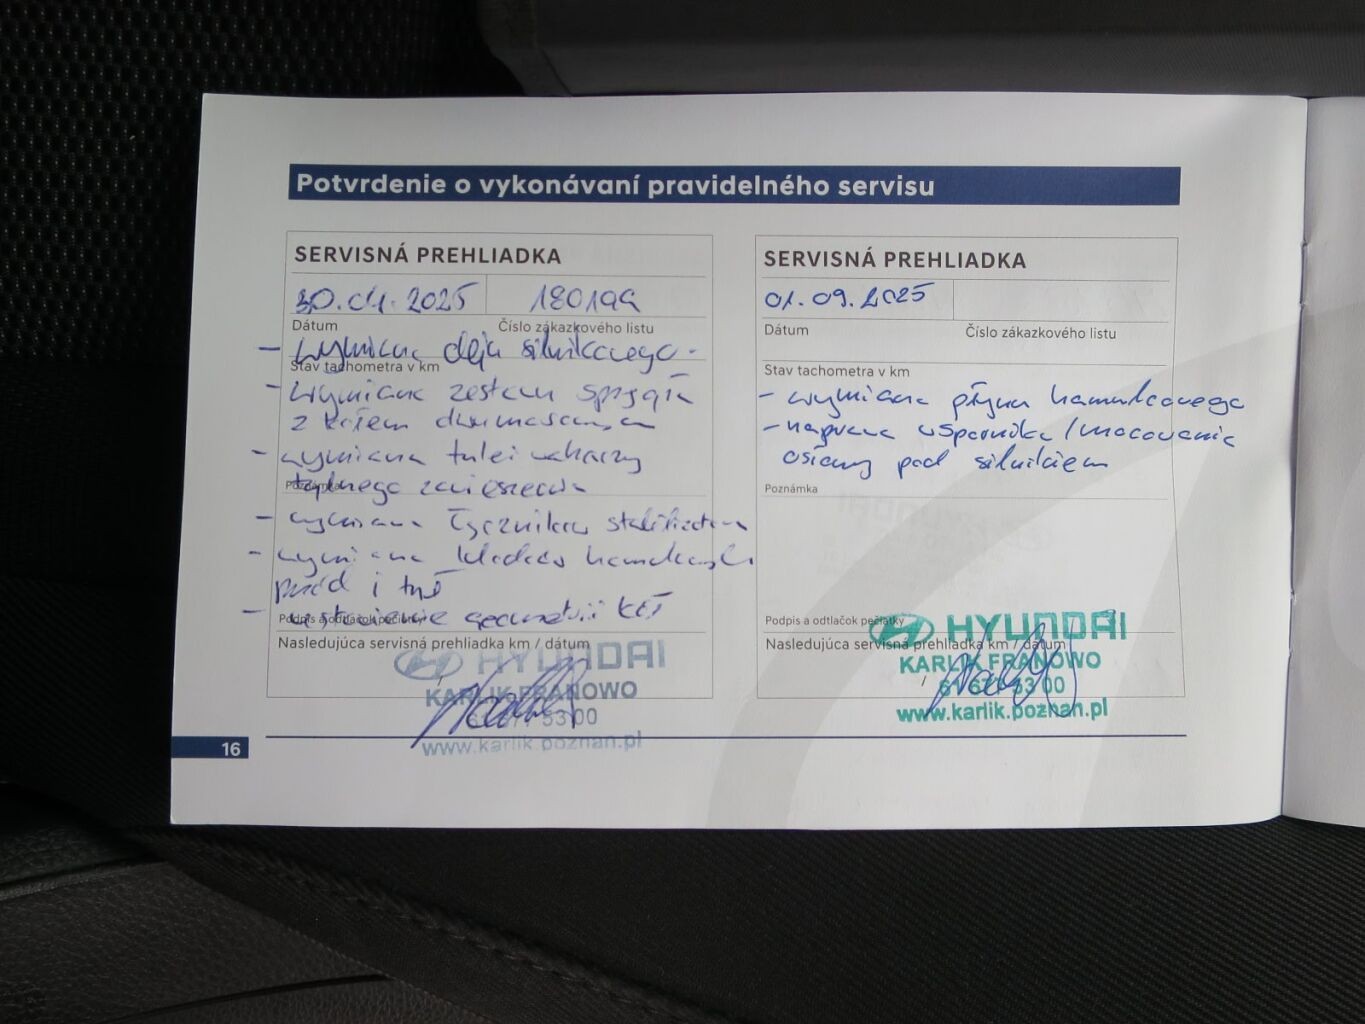 Potvrdenie o vykonávaní pravidelného servisu
SERVISNÁ PREHLIADKA
30.04.2025 180199
Dátum Číslo zákazkového listu
- wymiana oleju silnikowego.
Stav tachometra v km
- wymiana zestawu sprzęgła
z kołem dwumasowym
- wymiana tulei wahaczy
tylnego zawieszenia
Poznámka
- wymiana łączników stabilizatora
- wymiana klocków hamulcowych
przód i tył
- ustawienie geometrii kół
Podpis a odtlačok pečiatky
Nasledujúca servisná prehliadka km / dátum
HYUNDAI
KARLIK FRANOWO
61 677 53 00
www.karlik.poznan.pl
SERVISNÁ PREHLIADKA
01.09.2025
Dátum Číslo zákazkového listu
Stav tachometra v km
- wymiana płynu hamulcowego
- naprawa wspornika / mocowania
osłony pod silnikiem
Poznámka
Podpis a odtlačok pečiatky
Nasledujúca servisná prehliadka km / dátum
HYUNDAI
KARLIK FRANOWO
61 677 53 00
www.karlik.poznan.pl
16